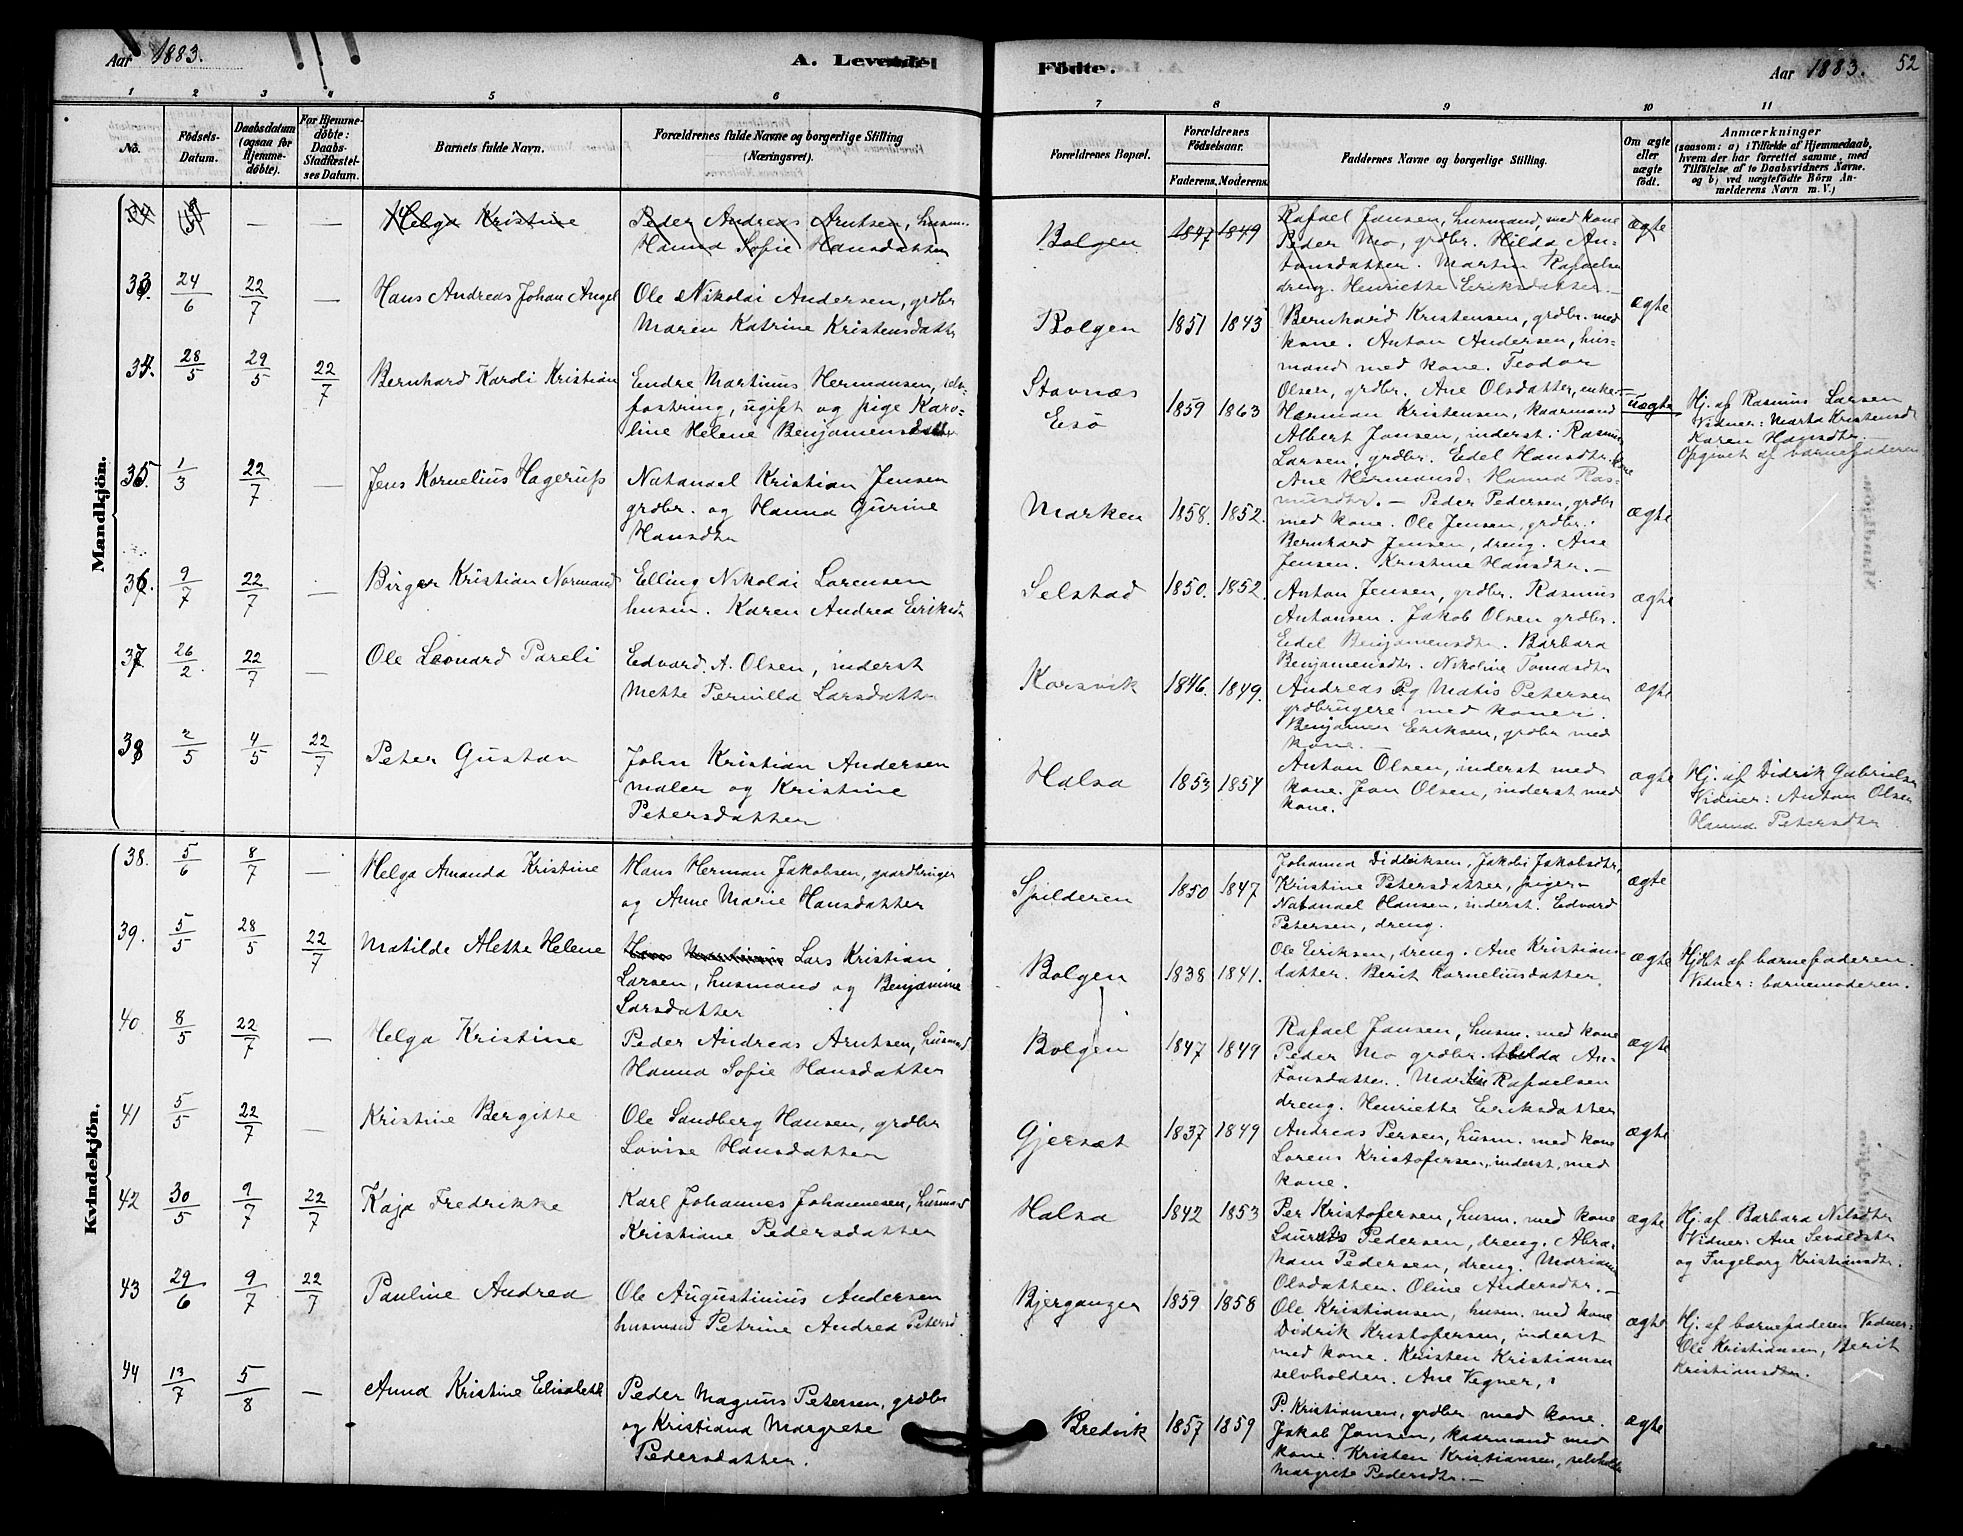 Aar 1883.
A. Levende
Födte.
Aar 1883. 52
1 2 3 4 5 6 7 8 9 10 11
No.
Födsels-Datum.
Daabsdatum (ogsaa for Hjemmedöbte).
For Hjemmedöbte: Daabs-Stadfæstelses Datum.
Barnets fulde Navn.
Forældrenes fulde Navne og borgerlige Stilling (Næringsvei).
Forældrenes Bopæl.
Forældrenes Födselsaar.
Faderens. Moderens.
Faddernes Navne og borgerlige Stilling.
Om ægte eller uægte födt.
Anmærkninger
(saasom: a) i Tilfælde af Hjemmedaab, hvem der har forrettet samme, med Tilföielse af to Daabsvidners Navne, og b) ved uægtefödte Börn Anmelderens Navn m. V.)
Mandkjön.
— — Helga Kristine
Peder Andreas Arntsen, husm.
Hanna Sofie Hansdatter
Bolgen 1847 1849
Rafael Jansen, husmand, med kone
Peder Mo, grdbr. Hilda An-
tonsdatter. Martin Rafaelsen
dreng. Henriette Eriksdatter.
ægte
33. 24/6 22/7 — Hans Andreas Johan Angel
Ole Nikolai Andersen, grdbr
Maren Katrine Kristensdatter
Bolgen 1851 1843
Bernhard Kristensen, grdbr. med
kone. Anton Andersen, hus-
mand med kone. Teodor
Olsen, grdbr. Ane Olsdatter, enke.—
ægte
34. 28/5 29/5 22/7 Bernhard Kardi Kristian
Endre Martinus Hermansen, selv-
fostring, ugift og pige Karo-
line Helene Benjamensdatter
Stavnæs
Esö 1859 1863
Herman Kristensen, kaarmand
Albert Jansen, inderst. Rasmus
Larsen, grdbr. Edel Hansdtr.
Ane Hermansd. Hanna Ras-
musdtr. —
uægte
Hj. af Rasmus Larsen
Vidner: Marta Kristensd
Karen Hansdtr.
Opgivet af barnefaderen
35. 1/3 22/7 — Jens Kornelius Hagerups
Natanael Kristian Jensen
grdbr. og Hanna Gurine
Hansdtr
Marken 1858. 1852.
Peder Pedersen, grdbr
med kone. Ole Jensen, grdbr.
Bernhard Jensen, dreng. Ane
Jensen. Kristine Hansdtr. —
ægte
36. 9/7 22/7 — Birger Kristian Normand
Elling Nikolai Lorensen
husm. Karen Andrea Eriksdtr
Selstad 1850. 1852.
Anton Jensen, grdbr. Rasmus
Antonsen. Jakob Olsen grdbr.
Edel Benjamensdtr. Barbara
Benjamensdtr. Nikoline Tomasdtr
ægte
37 26/2 22/7 — Ole Leonard Pareli
Edvard A. Olsen, inderst
Mette Pernilla Larsdatter
Korsvik 1846. 1849.
Andreas og Matis Petersen
grdbrugere med koner.
Benjamen Eriksen, grdbr med
kone. —
ægte
38 2/5 4/5 22/7 Peter Gustav
John Kristian Andersen
maler og Kristine
Petersdatter
Halsa 1853 1854
Anton Olsen, inderst med
kone. Jon Olsen, inderst med
kone.
ægte
Hj. af Didrik Gabrielsen
Vidner: Anton Olsen
Hanna Petersdtr
Kvindekjön.
38. 5/6 8/7 — Helga Amanda Kristine
Hans Herman Jakobsen, gaardbruger
og Anne Marie Hansdatter
Spilderen 1850 1847
Johanna Didriksen, Jakobi Jakobsdtr,
Kristine Petersdatter, piger—
Natanael Hansen, inderst. Edvard
Petersen, dreng.
ægte
39. 5/5 28/5 22/7 Matilde Alette Helene
Lars Kristian
Larsen, husmand og Benjamine
Larsdatter
Bolgen 1838 1841.
Ole Eriksen, dreng. Ane Kristians-
datter. Berit Korneliusdatter
ægte
Hjdbt af barnefaderen.
Vidner: barnemoderen.
40. 8/5 22/7 — Helga Kristine
Peder Andreas Arntsen, husmand
Hanna Sofie Hansdatter
Bolgen 1847 1849
Rafael Jansen, husm. med kone
Peder Mo grdbr. Hilda An-
tonsdatter. Martin Rafaelsen
dreng. Henriette Eriksdatter
ægte
41 5/5 22/7 — Kristine Bergitte
Ole Sandberg Hansen, grdbr
Lovise Hansdatter
Gjersæt 1837 1849
Andreas Persen, husm. med kone
Lorens Kristofersen, inderst, med
kone.
ægte
42 30/5 9/7 22/7 Kaja Fredrikke
Karl Johannes Johannesen, husmand
Kristiane Pedersdatter
Halsa 1842 1853
Per Kristofersen, husm. med kone
Laurits Pedersen, dreng. Abra-
ham Pedersen, dreng. Mariane
Olsdatter. Oline Andersdtr. —
ægte
Hj. af Barbara Nilsdtr
Vidner: Ane Sevaldsdtr
og Ingeborg Kristiansdtr.
43 29/6 9/7 22/7 Pauline Andrea
Ole Augustinius Andersen
husmand Petrine Andrea Petersd.
Bjerganger 1859 1858
Ole Kristiansen, husm. med kone
Didrik Kristofersen, inderst
med kone. Kristen Kristiansen
selvholden. Ane Vegner,
ægte
Hj. af barnefaderen Vidner:
Ole Kristiansen, Berit
Kristiansdtr.
44 13/7 5/8 — Anna Kristine Elisabeth
Peder Magnus Petersen, grdbr
og Kristiana Margrete
Pedersdatter.
Bredvik 1857 1859
P. Kristiansen, grdbr med kone.
Jakob Jansen, kaarmand med
kone. Kristen Kristiansen, selvholden
Margrete Pedersdtr. —
ægte